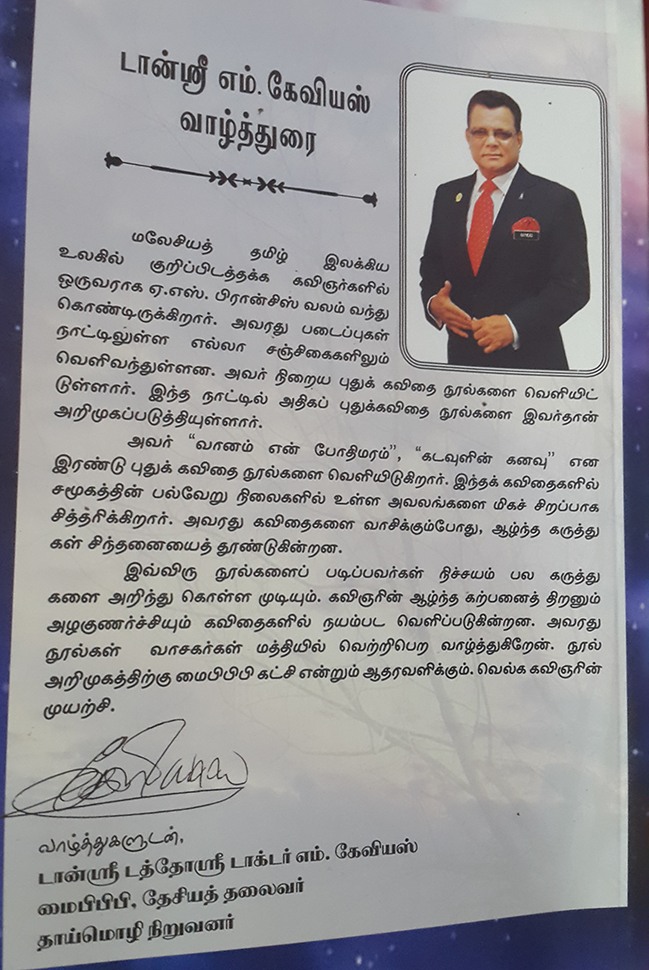 டான்ஸ்ரீ எம். கேவியஸ்
வாழ்த்துரை
மலேசியத் தமிழ் இலக்கிய
உலகில் குறிப்பிடத்தக்க கவிஞர்களில்
ஒருவராக ஏ.எஸ். பிரான்சிஸ் வலம் வந்து
கொண்டிருக்கிறார். அவரது படைப்புகள்
நாட்டிலுள்ள எல்லா சஞ்சிகைகளிலும்
வெளிவந்துள்ளன. அவர் நிறைய புதுக் கவிதை நூல்களை வெளியிட்
டுள்ளார். இந்த நாட்டில் அதிகப் புதுக்கவிதை நூல்களை இவர்தான்
அறிமுகப்படுத்தியுள்ளார்.
அவர் “வானம் என் போதிமரம்”, “கடவுளின் கனவு” என
இரண்டு புதுக் கவிதை நூல்களை வெளியிடுகிறார். இந்தக் கவிதைகளில்
சமூகத்தின் பல்வேறு நிலைகளில் உள்ள அவலங்களை மிகச் சிறப்பாக
சித்தரிக்கிறார். அவரது கவிதைகளை வாசிக்கும்போது, ஆழ்ந்த கருத்து
கள் சிந்தனையைத் தூண்டுகின்றன.
இவ்விரு நூல்களைப் படிப்பவர்கள் நிச்சயம் பல கருத்து
களை அறிந்து கொள்ள முடியும். கவிஞரின் ஆழ்ந்த கற்பனைத் திறனும்
அழகுணர்ச்சியும் கவிதைகளில் நயம்பட வெளிப்படுகின்றன. அவரது
நூல்கள் வாசகர்கள் மத்தியில் வெற்றிபெற வாழ்த்துகிறேன். நூல்
அறிமுகத்திற்கு மைபிபிபி கட்சி என்றும் ஆதரவளிக்கும். வெல்க கவிஞரின்
முயற்சி.
வாழ்த்துகளுடன்,
டான்ஸ்ரீ டத்தோஸ்ரீ டாக்டர் எம். கேவியஸ்
மைபிபிபி, தேசியத் தலைவர்
தாய்மொழி நிறுவனர்